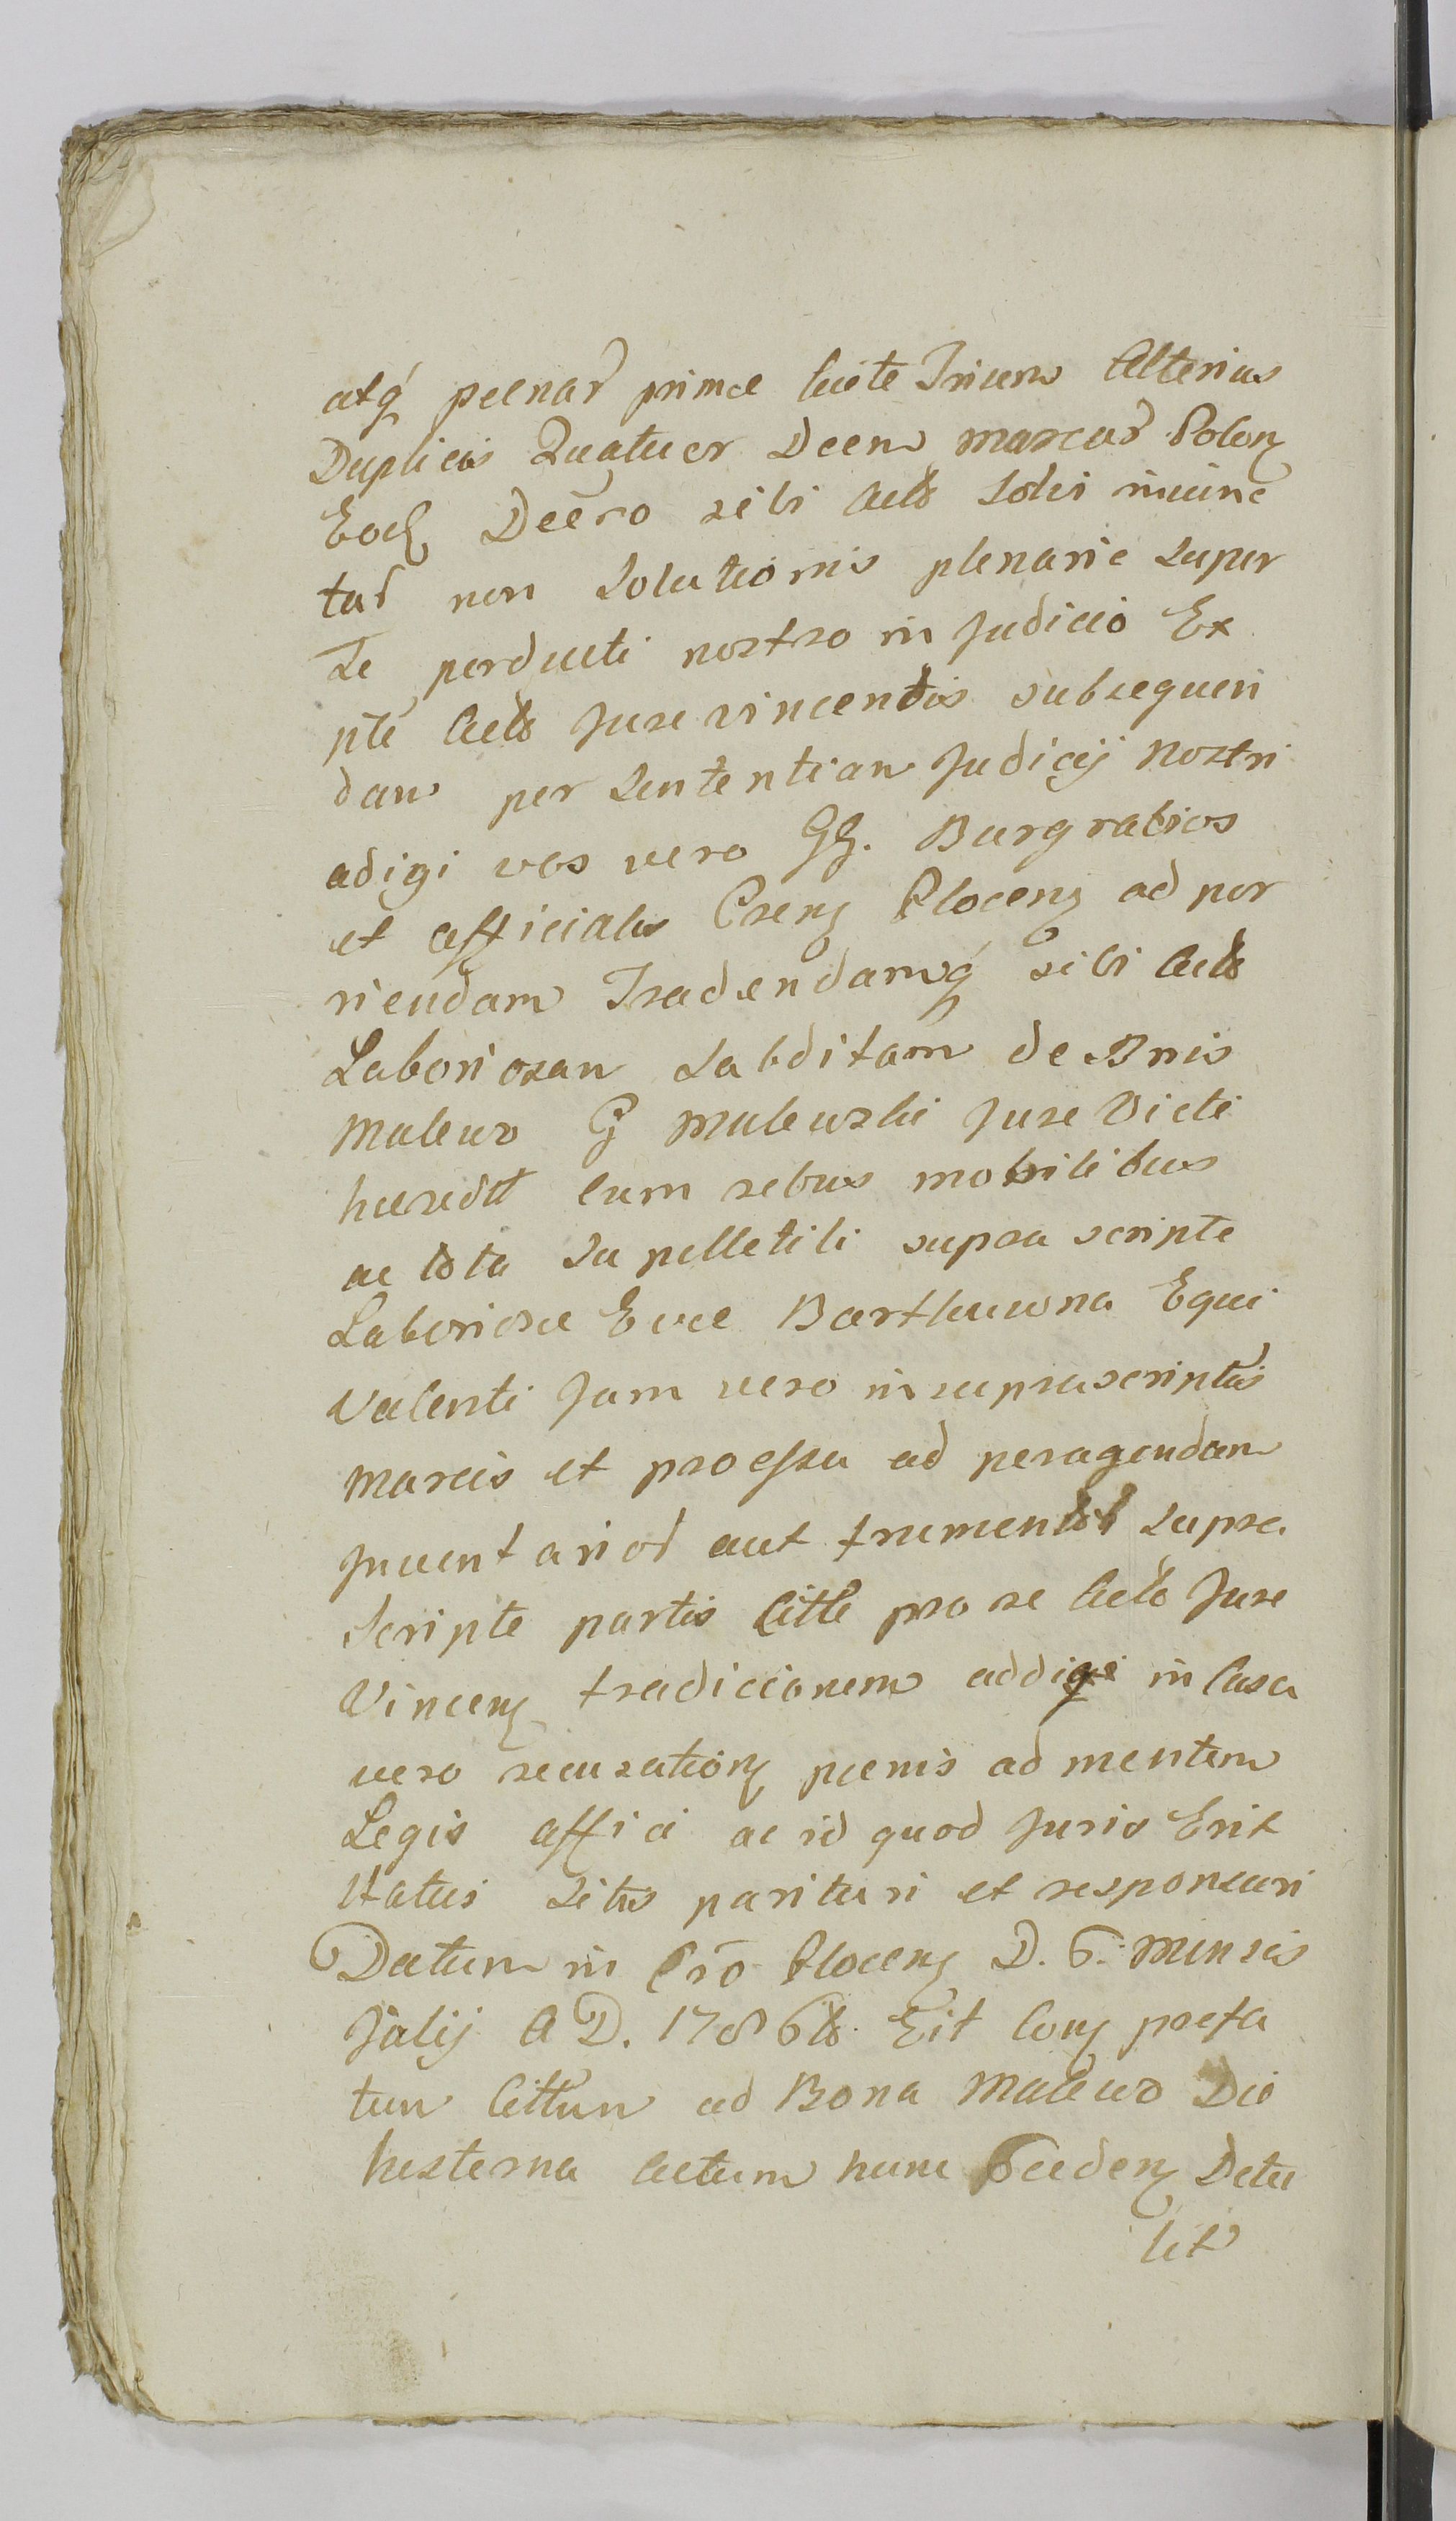 atq̃ pœnar̃ primæ lucte Trium Alterius
Duplicis Quatuor Decm marcar̃ Polon̄
Eod̄ Decr̃o sibi Actō solvi iniunc
tar̃ non Solutionis plenarie super
Se perducti nostro in Judicio Ex
pte Actō Jure vincentis subsequen
dam per Sententiam Judicÿ nostri
adigi vos vero GG. Burgrabios
et officiales Csens Plocens ad per
riendam Tradendamq̃ sibi Actō
Laboriosam Subditam de Bnis
Malewo G Malewski Jure Victi
hæredit̃ cum rebus mobilibus
ac tota Supelletili supra scripte
Laboriosæ Evæ Barthuwna Equi
Valenti Jam vero in suprascriptis
marcis et processu ad peragendam
Inventarior̃ aut Supra
Scripte partis Citte pro se Actō Jure
Vincen̄ tradicionem addigi in Casu
vero recusation̄ pœnis ad mentem
Legis affici ac id quod Juris Erit
Statui sitis parituri et responsuri
Datum in Cr̃o Plocens D. 6. Mensis
Julÿ A D. 1786tō. Eit Cons præfa
tum Cittm̃ ad Bona Malewo Die
hesterna Actum hunc Præceden̄ Detu
lit